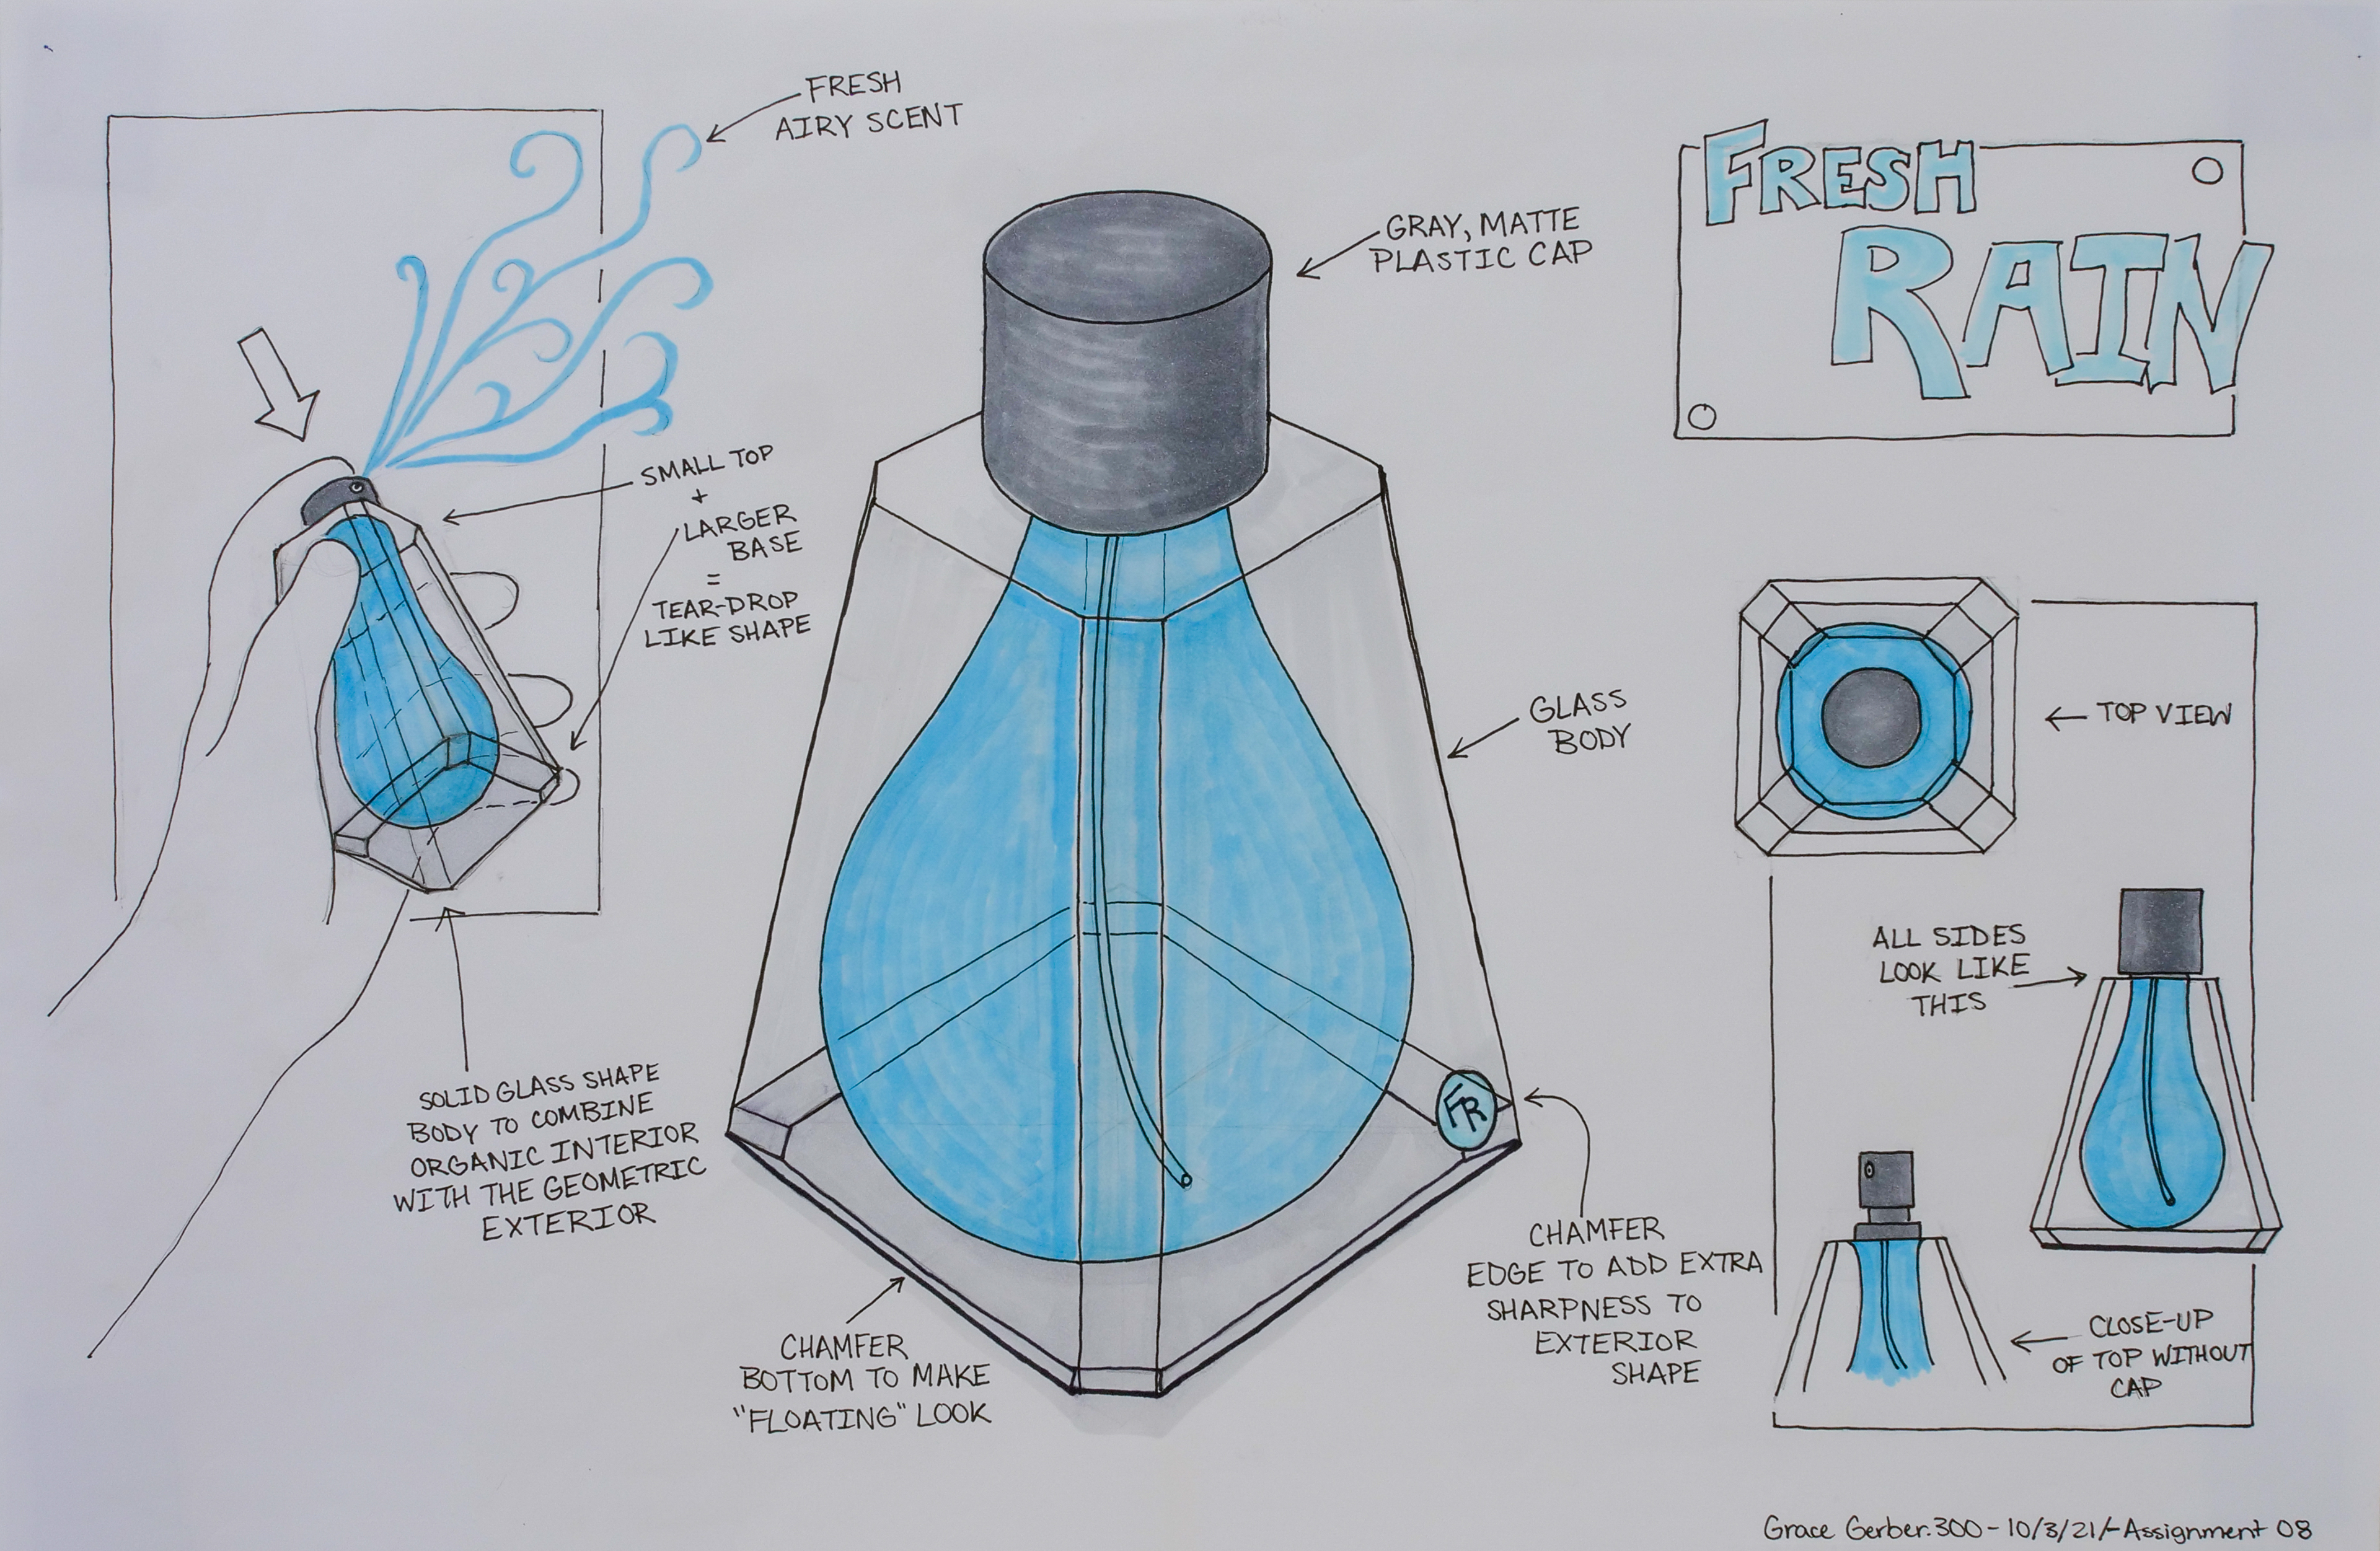 FRESH
AIRY SCENT
SMALL TOP
+
LARGER
BASE
=
TEAR-DROP
LIKE SHAPE
SOLID GLASS SHAPE
BODY TO COMBINE
ORGANIC INTERIOR
WITH THE GEOMETRIC
EXTERIOR
GRAY, MATTE
PLASTIC CAP
GLASS
BODY
FR
CHAMFER
EDGE TO ADD EXTRA
SHARPNESS TO
EXTERIOR
SHAPE
CHAMFER
BOTTOM TO MAKE
"FLOATING" LOOK
FRESH
RAIN
TOP VIEW
ALL SIDES
LOOK LIKE
THIS
CLOSE-UP
OF TOP WITHOUT
CAP
Grace Gerber.300-10/3/21/-Assignment 08